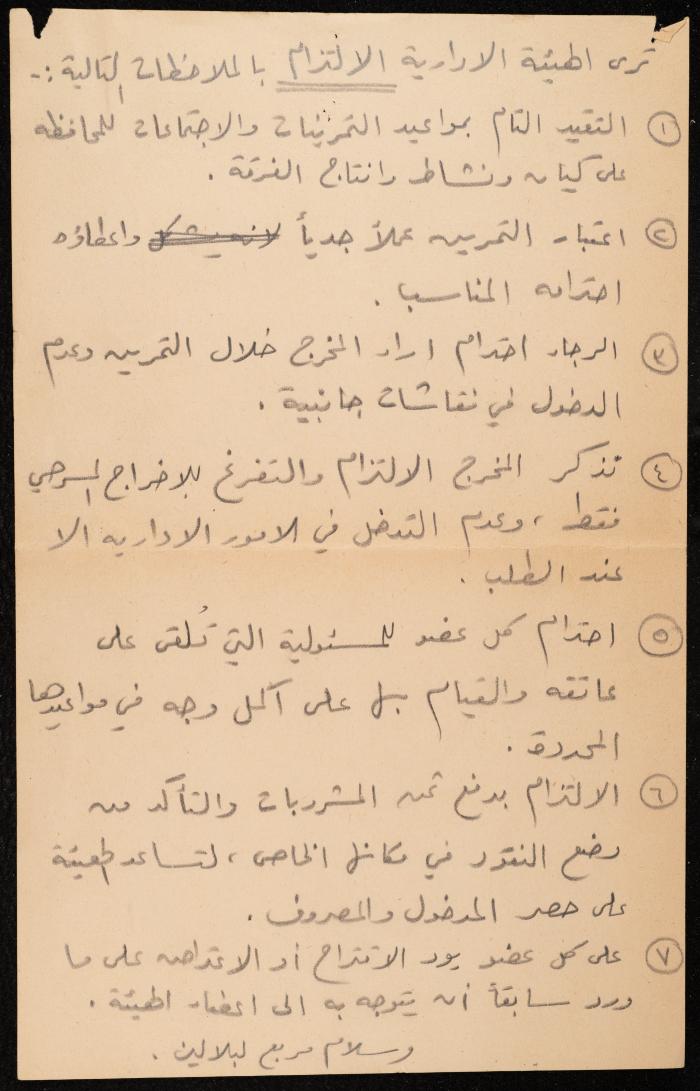 ترى الهيئة الادارية الالتزام بالملاحظات التالية :-
① التقيد التام بمواعيد التمرينات والاجتماعات للمحافظه
على كيان ونشاط وانتاج الفرقة .
② اعتبار التمرين عملاً جدياً لانه يشكل واعطاؤه
احترامه المناسب .
③ الرجاء احترام اراء المخرج خلال التمرين وعدم
الدخول في نقاشات جانبية .
④ تذكر المخرج الالتزام والتفرغ للإخراج المسرحي
فقط ، وعدم التدخل في الامور الاداريه الا
عند الطلب .
⑤ احترام كل عضو للمسئولية التي تُلقى على
عاتقه والقيام بها على اكمل وجه في مواعيدها
المحددة .
⑥ الالتزام بدفع ثمن المشروبات والتأكد من
وضع النقود في مكانها الخاص ، لتساعد الهيئة
على حصر المدخول والمصروف .
⑦ على كل عضو يود الاقتراح أو الاعتراض على ما
ورد سابقاً أن يتوجه به الى اعضاء الهيئة .
وسلام مربع لبلالين .